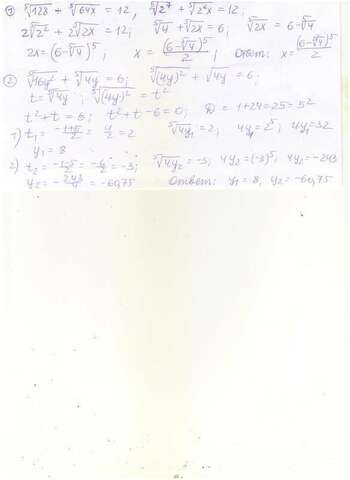 1) ⁵√128 + ⁵√64x = 12, ⁵√2⁷ + ⁵√2⁶x = 12;
2⁵√2² + 2⁵√2x = 12; ⁵√4 + ⁵√2x = 6; ⁵√2x = 6-⁵√4
2x = (6-⁵√4)⁵; x = (6-⁵√4)⁵/2; Ответ: x = (6-⁵√4)⁵/2
2) ⁵√16y² + ⁵√4y = 6; ⁵√(4y)² + ⁵√4y = 6;
t = ⁵√4y; ⁵√(4y)² = t²
t² + t = 6; t² + t - 6 = 0; D = 1+24 = 25 = 5²
1) t₁ = (-1+5)/2 = 4/2 = 2 ⁵√4y₁ = 2; 4y₁ = 2⁵; 4y₁ = 32
y₁ = 8
2) t₂ = (-1-5)/2 = -6/2 = -3; ⁵√4y₂ = -3; 4y₂ = (-3)⁵; 4y₂ = -243
y₂ = -243/4 = -60,75 Ответ: y₁ = 8, y₂ = -60,75